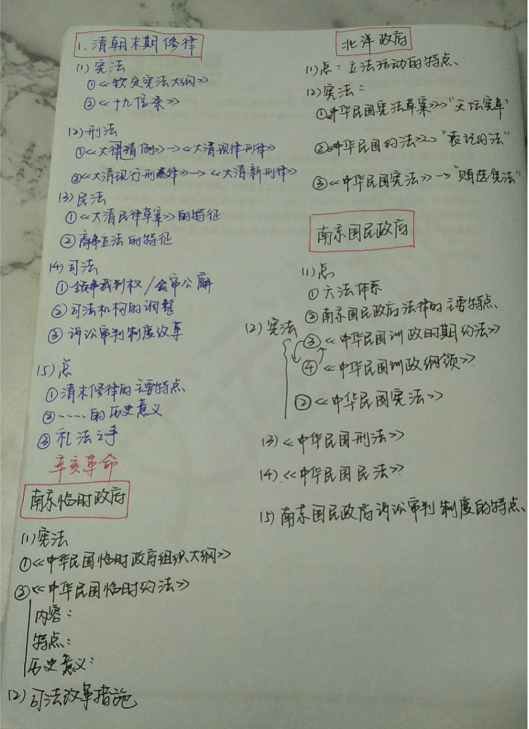 1. 清朝末期修律
(1) 宪法
①《钦定宪法大纲》
②《十九信条》
(2) 刑法
①《大清律例》→《大清现行刑律》
②《大清现行刑律》→《大清新刑律》
(3) 民法
①《大清民律草案》的特征
② 商事立法的特征
(4) 司法
① 领事裁判权/会审公廨
② 司法机构的调整
③ 诉讼审判制度改革
(5) 点
① 清末修律的主要特点、
② ……的历史意义
③ 礼法之争
辛亥革命
南京临时政府
(1) 宪法
①《中华民国临时政府组织大纲》
②《中华民国临时约法》
内容：
特点：
历史意义：
(2) 司法改革措施
北洋政府
(1) 点：立法活动的特点、
(2) 宪法：
①《中华民国宪法草案》→"天坛宪草"
②《中华民国约法》→"袁记约法"
③《中华民国宪法》→"贿选宪法"
南京国民政府
(1) 点
① 六法体系
② 南京国民政府法律的主要特点、
(2) 宪法
③《中华民国训政时期约法》
④《中华民国训政纲领》
②《中华民国宪法》
(3)《中华民国刑法》
(4)《中华民国民法》
(5) 南京国民政府诉讼审判制度的特点、